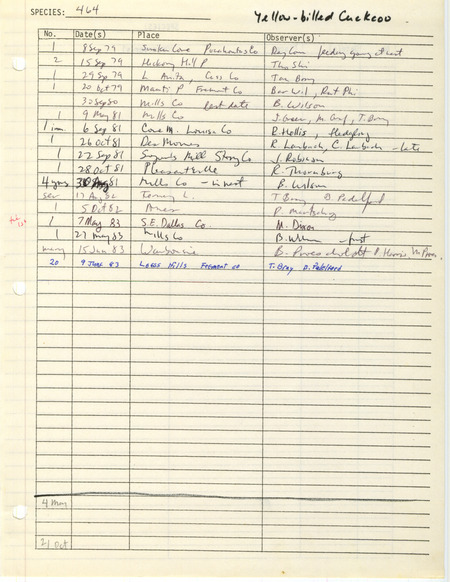 SPECIES: 464
Yellow-billed Cuckoo
No. Date(s) Place Observer(s)
1 8 Sep 79 Sunken Grove Pocahontas Co feeding young at nest
2 15 Sep 79 Hickory Hill P
1 29 Sep 79 L. Anita, Cass Co Tom Bray
1 20 Oct 79 Manti P Fremont Co Bar Wil, Rut Phi
30 Sep 80 Mills Co last date B. Wilson
1 9 May 81 Mills Co J. Green, T. Bray
1 im. 6 Sep 81 Cone M. Louisa Co R. Hollis, fledgling
1 26 Oct 81 Des Moines late
1 22 Sep 81 Mill Story Co J. Robinson
1 28 Oct 81 Pleasantville R. Thornburg
4 yng 30 Aug 81 Mills Co - in nest B. Wilson
sev 17 Aug 82 T Bray D. Padelford
1 5 Oct 82 Ames
1 7 May 83 S.E. Dallas Co M. Brown
1 21 may 83 Mills Co B. Wilson - first
many 15 Jun 83
20 9 June 83 Loess Hills Fremont Co T. Bray D. Padelford
4 May
21 Oct